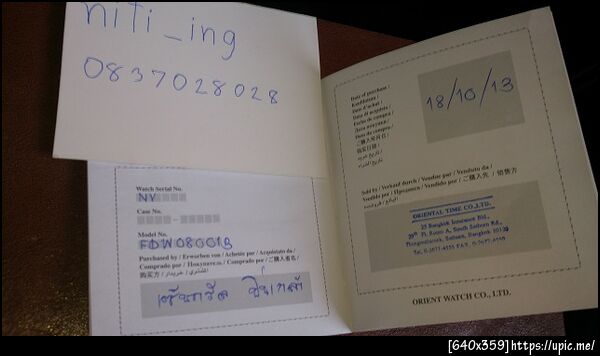 niti_ing
0837028028
Watch Serial No.
NY
Case No.
Model No.
FDW08001B
Purchased by / Erworben von / Achetée par / Acquistato da /
Comprado por / Покупатель / Comprado por / ご購入者名 /
购买方 / خريدار / المشتري
Date of purchase /
Kaufdatum /
Date d'achat /
Data di acquisto /
Fecha de compra /
Дата покупки /
Data da compra /
ご購入年月日 /
购买日期 /
18/10/13
Sold by / Verkauf durch / Vendue par / Venduto da /
Vendido por / Продавец / Vendido por / ご購入先 / 销售方
ORIENTAL TIME CO.,LTD.
25 Bangkok Insurance Bld.,
Fl. Room A, South Sathorn Rd.,
Sathorn, Bangkok 10120
ORIENT WATCH CO., LTD.
[640x359]https://upic.me/